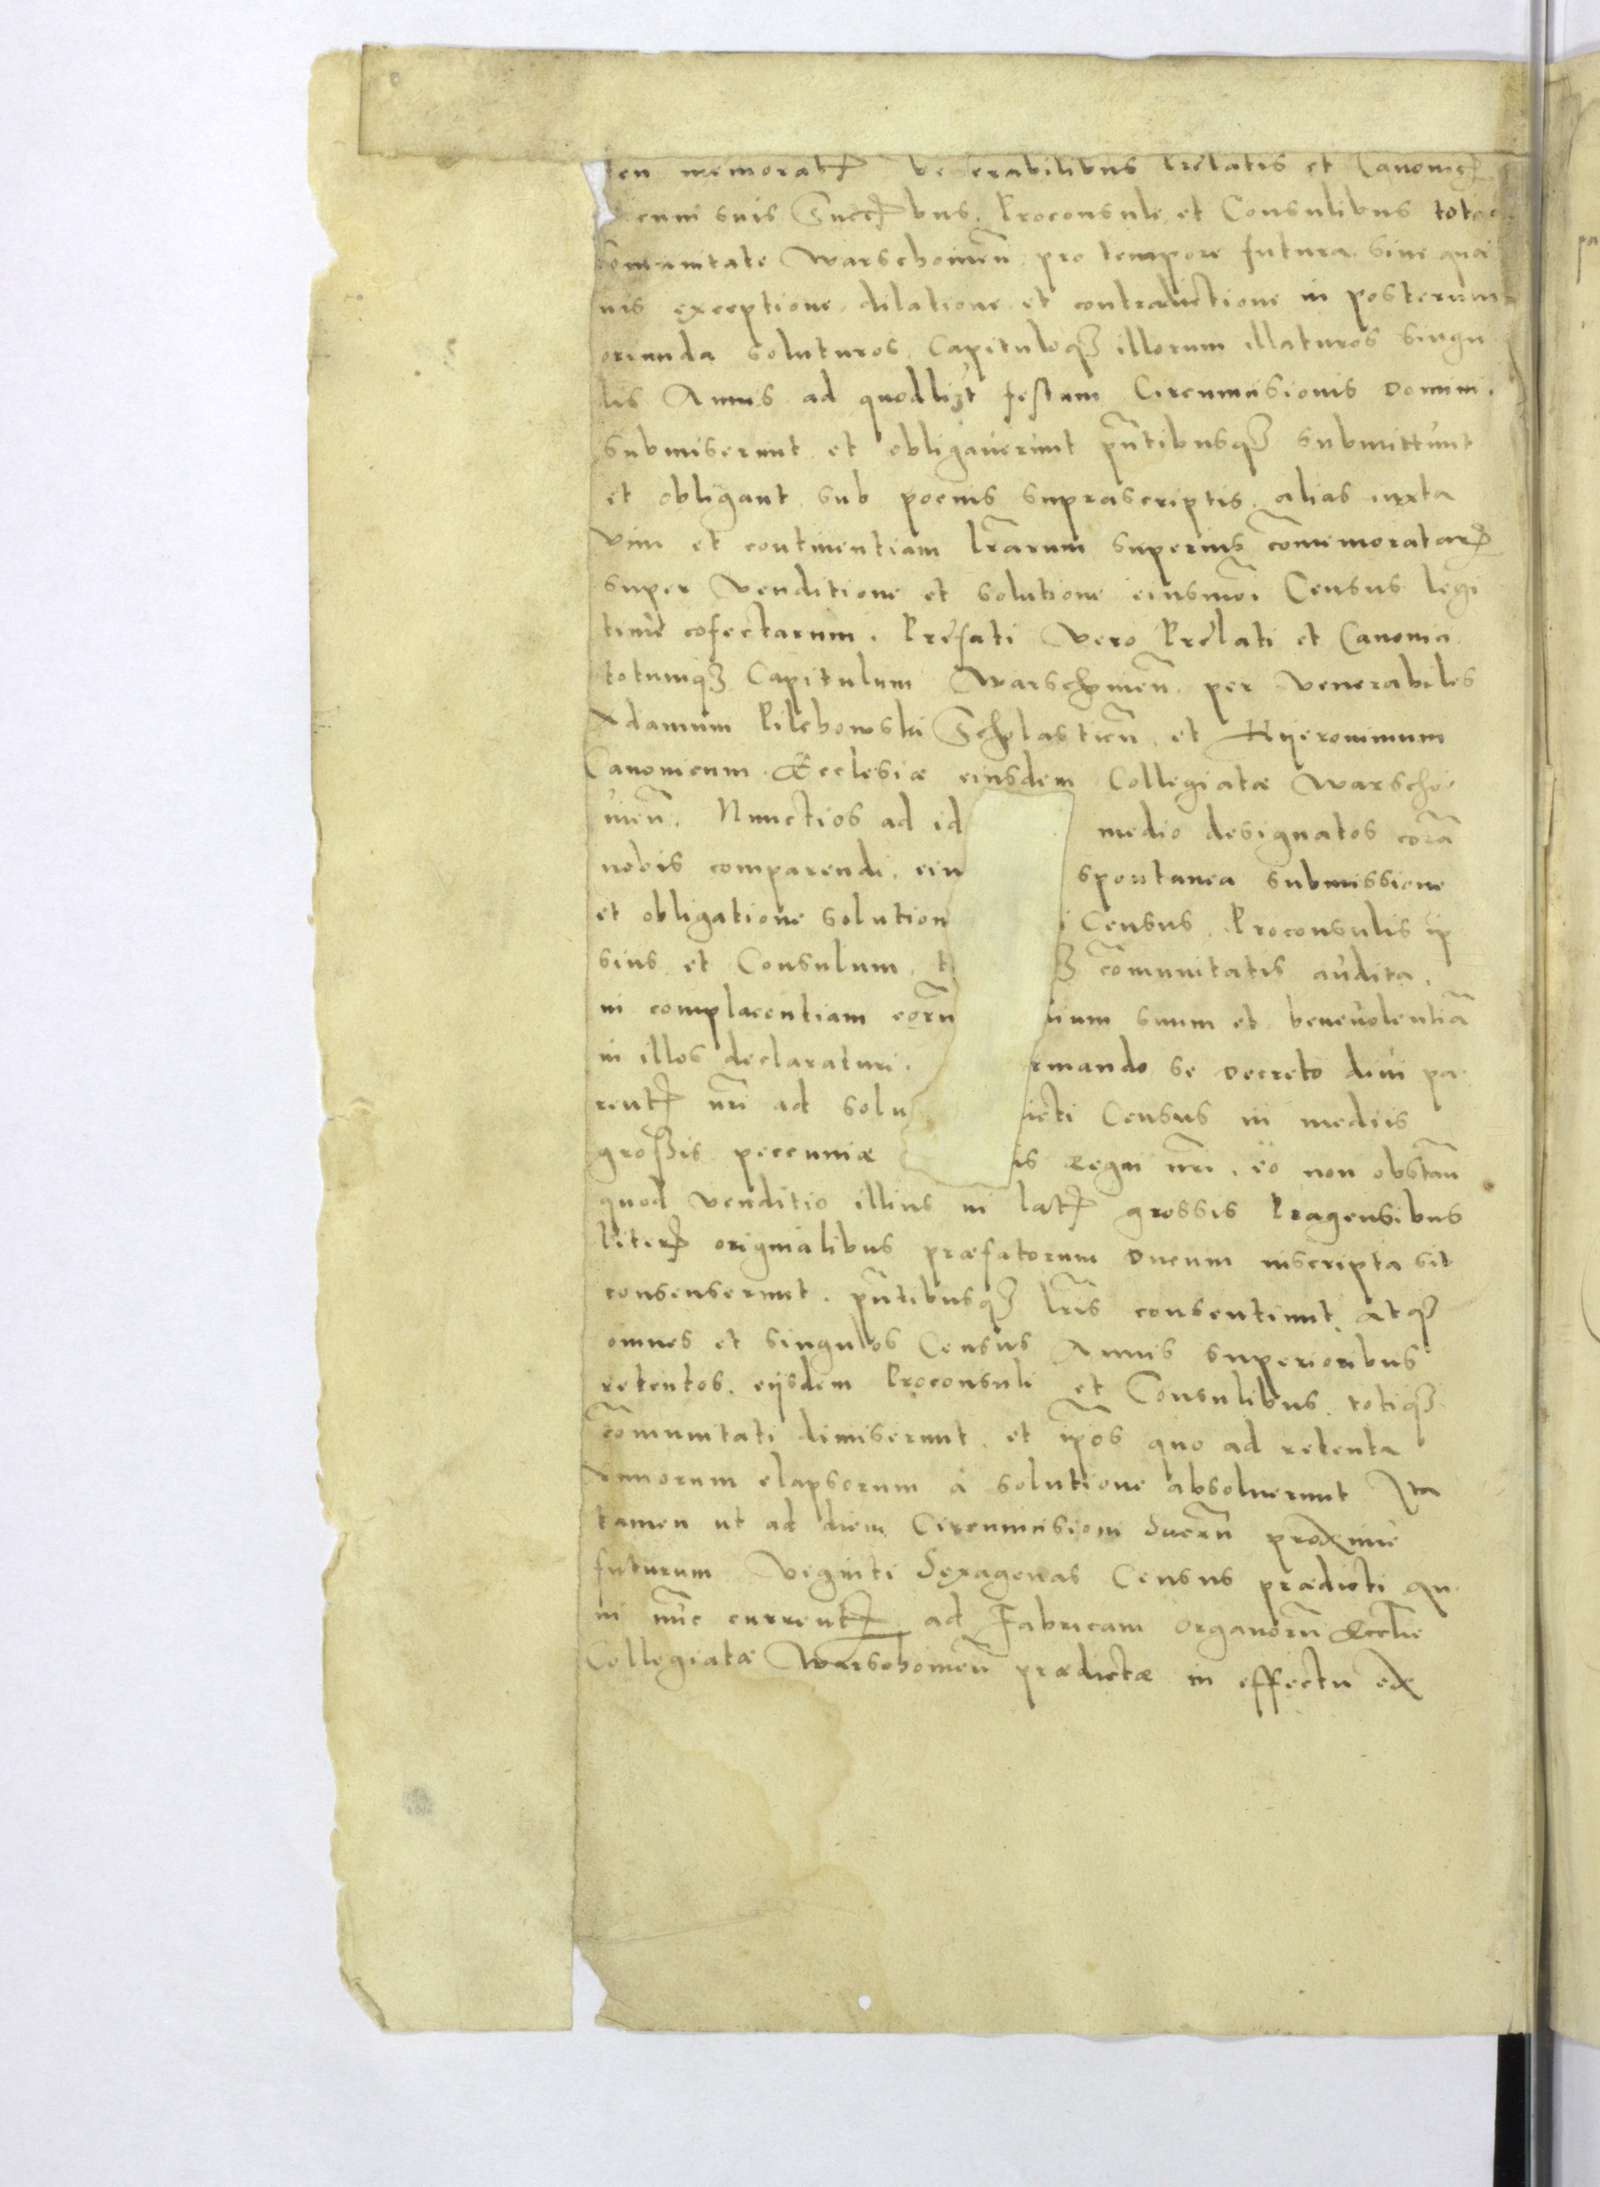 memorat venerabilibus Prelatis et Canonicꝭ
cum suis Succꝭbus, Proconsule et Consulibus totaqꝫ
Comunitate Warschoinen̄ pro tempore futura sine quâ
vis exceptione dilatione et contradictione in posterum
oriunda soluturos Capituloqꝫ illorum illaturos singu
lis Annis ad quodlibꝫt festum Circumcisionis Domini.
submiserunt et obligaverunt pn̄tibusqꝫ submittunt
et obligant sub poenis suprascriptis alias iuxta
vim et continentiam lr̄arum superius com̄emoratarꝭ
super venditione et solutione eiusmōi Census legi
timè cōfectarum. Prefati vero Prelati et Canonici
totumqꝫ Capitulum Warschoinen̄ per venerabiles
Adamum Pilchowski Scholasticū et Hyeronimum
Canonicum Ecclesiæ eiusdem Collegiatæ Warscho-
inen̄. Nunctios ad id medio designatos corā
nobis comparendi, ein spontanea submissione
et obligatione solution i Census. Proconsulis ip
sius et Consulum t ꝫ com̄unitatis audita.
in complacentiam eorū suum et benevolentiā
in illos declaraturi. rmando se Decreto divi pa-
rentꝭ nr̄i ad solu icti Census in mediis
grossis peccuniæ is Regni nr̄i. eo non obstan̄
quod venditio illius in latꝭ grossis Pragensibus
literꝭ originalibus præfatorum Ducum inscripta sit
consenserunt. pn̄tibusqꝫ lr̄is consentiunt, Atqꝫ
omnes et singulos Census Annis superioribus
retentos, eijsdem Proconsuli et Consulibus, totiqꝫ
com̄unitati dimiserunt, et ip̄os quo ad retenta
Annorum elapsorum à solutione absolverunt Ita
tamen ut ad diem Circumcisioni Sacrū proximè
futurum Viginti Sexagenas Census prædicti an-
ni nūc currentꝭ ad Fabricam organorū Eccl̄iæ
Collegiatæ Warschoinen̄ prædictæ in effectu ex